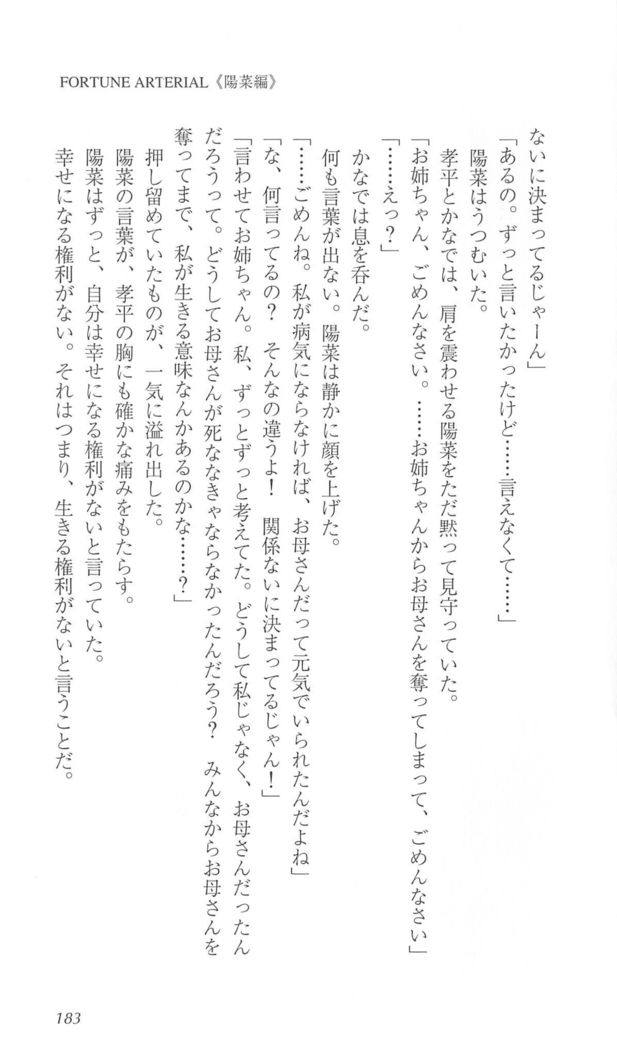 FORTUNE ARTERIAL《陽菜編》
ないに決まってるじゃーん」
「あるの。ずっと言いたかったけど……言えなくて……」
陽菜はうつむいた。
孝平とかなでは、肩を震わせる陽菜をただ黙って見守っていた。
「お姉ちゃん、ごめんなさい。……お姉ちゃんからお母さんを奪ってしまって、ごめんなさい」
「……えっ？」
かなでは息を呑んだ。
何も言葉が出ない。陽菜は静かに顔を上げた。
「……ごめんね。私が病気にならなければ、お母さんだって元気でいられたんだよね」
「な、何言ってるの？　そんなの違うよ！　関係ないに決まってるじゃん！」
「言わせてお姉ちゃん。私、ずっとずっと考えてた。どうして私じゃなく、お母さんだったん
だろうって。どうしてお母さんが死ななきゃならなかったんだろう？　みんなからお母さんを
奪ってまで、私が生きる意味なんかあるのかな……？」
押し留めていたものが、一気に溢れ出した。
陽菜の言葉が、孝平の胸にも確かな痛みをもたらす。
陽菜はずっと、自分は幸せになる権利がないと言っていた。
幸せになる権利がない。それはつまり、生きる権利がないと言うことだ。
183